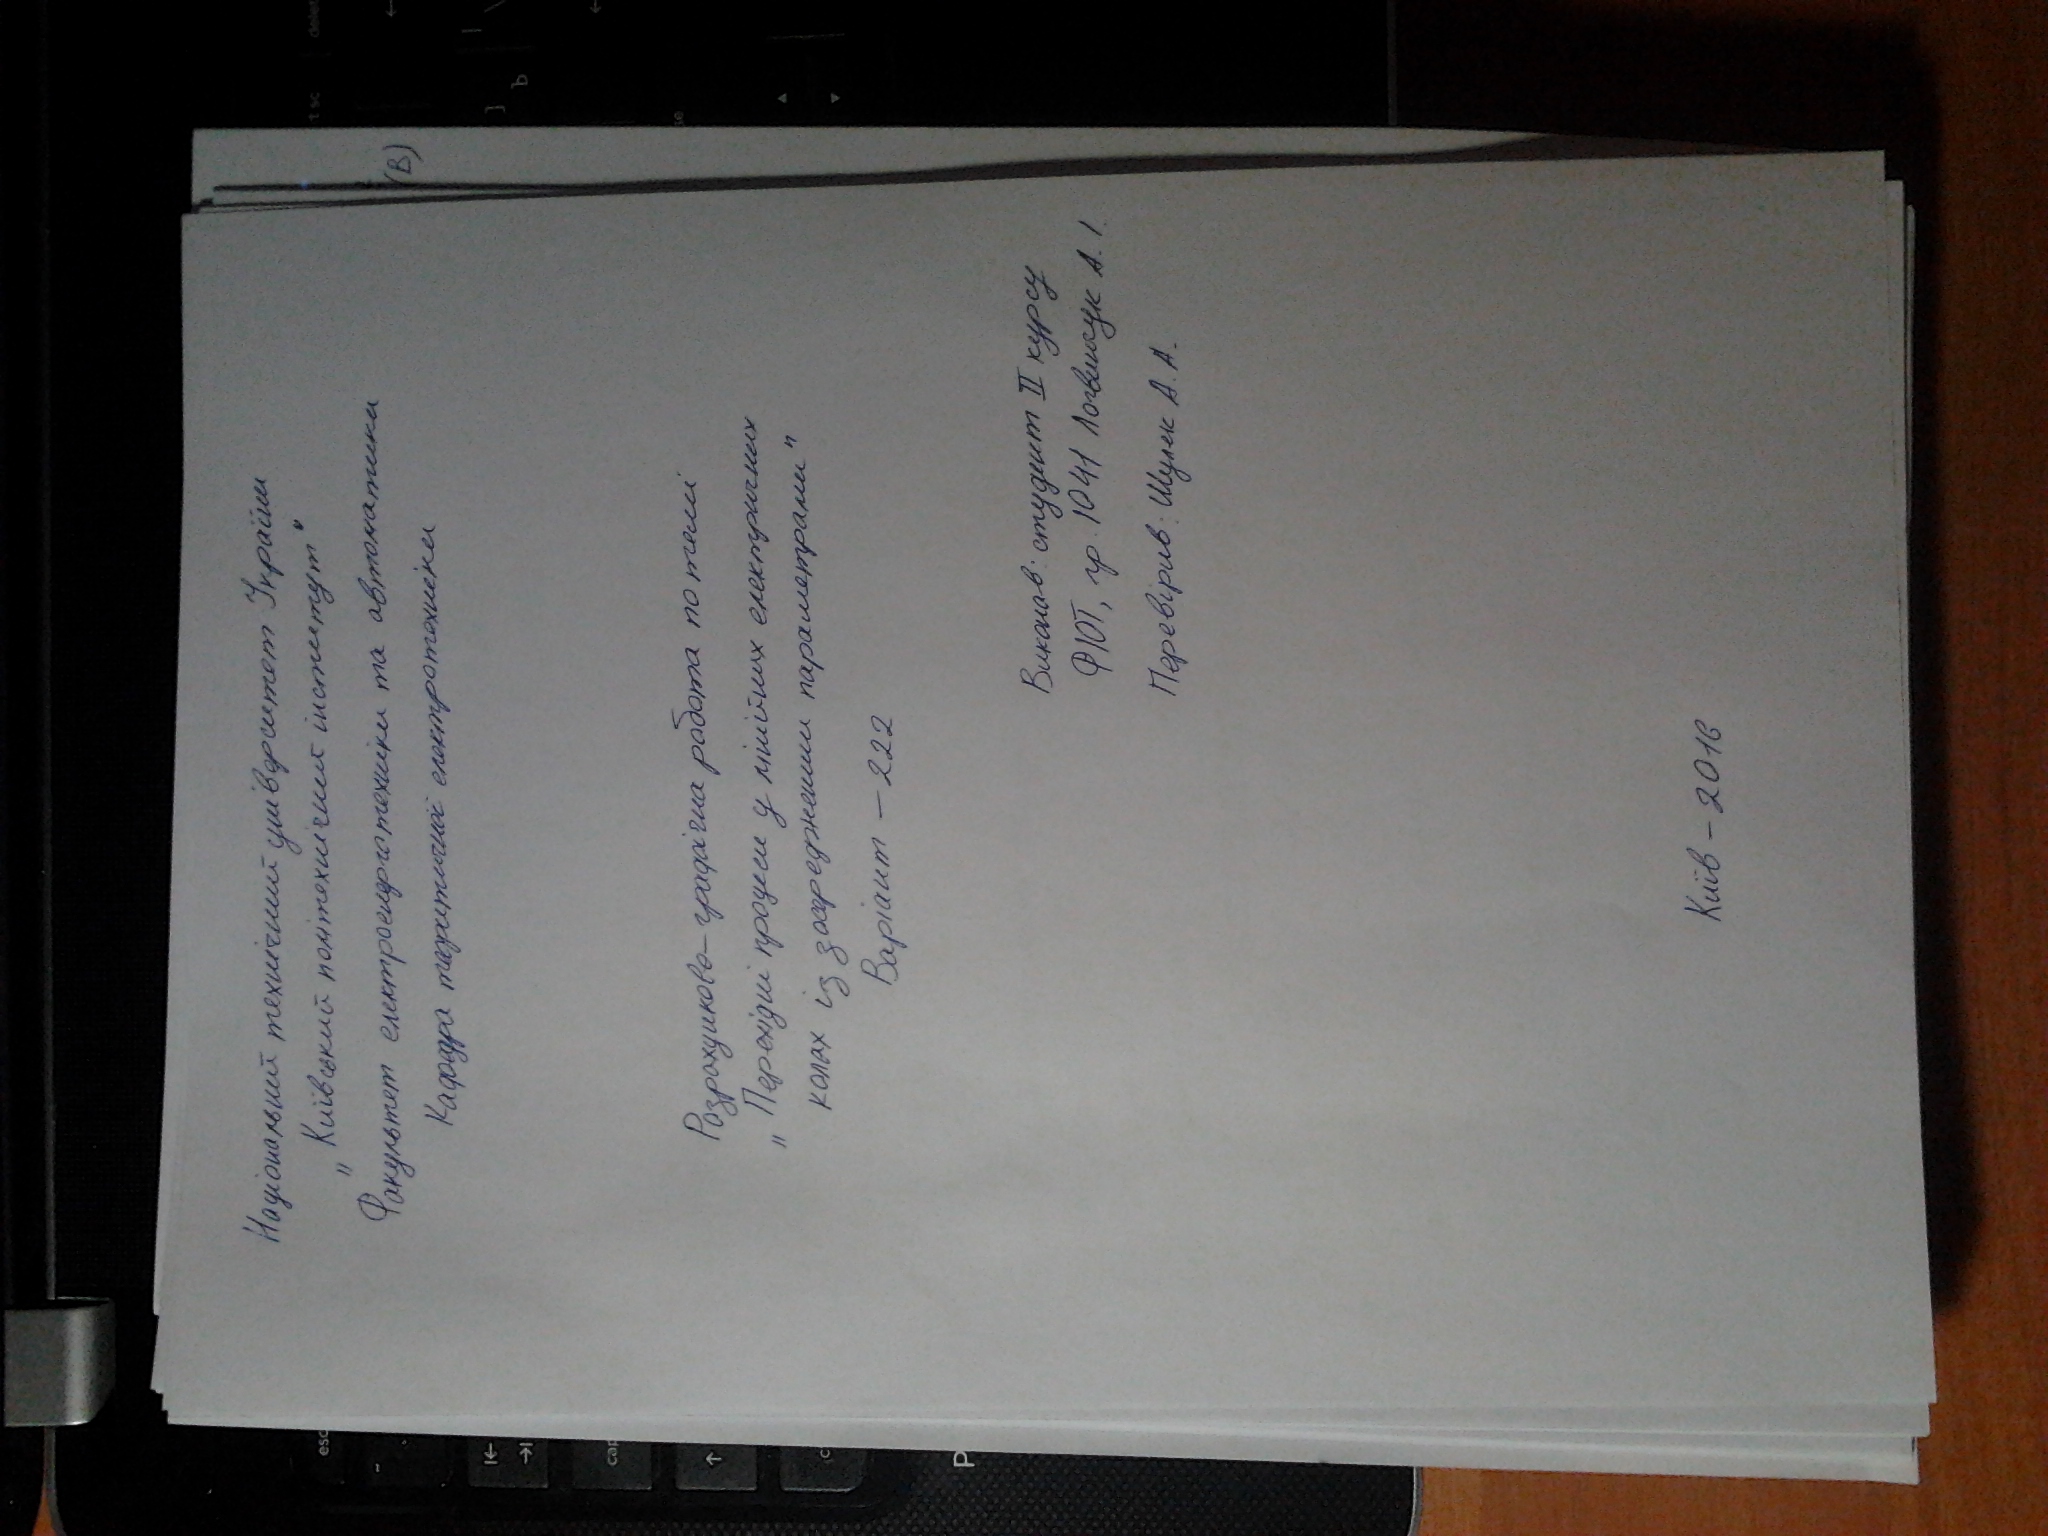 Національний технічний університет України
„Київський політехнічний інститут"
Факультет електроенерготехніки та автоматики
Кафедра теоритичної електротехніки
Розрахунково-графічна робота по темі
„Перехідні процеси у лінійних електричних
колах із зосередженими параметрами"
Варіант - 222
Виконав: студент II курсу
гр. А. І.
Перевірив: А. А.
Київ - 2016
(В)
esc
cap
P
t sc
delet
]
Ъ